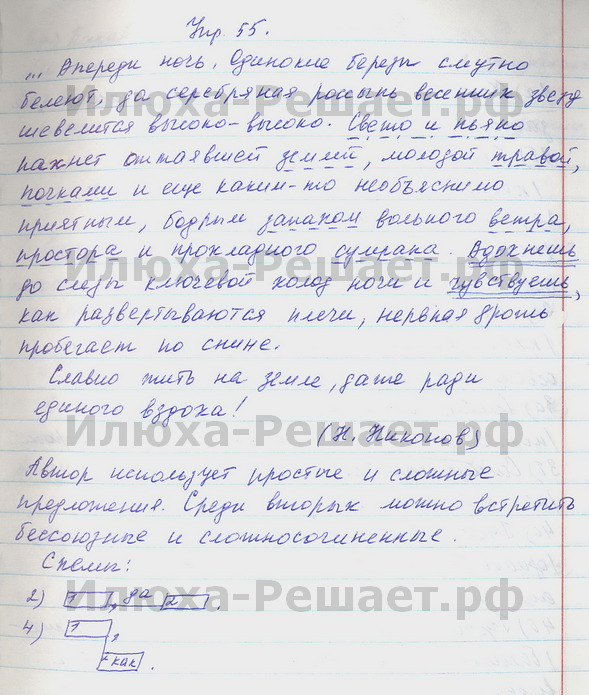 Упр. 55.
... Впереди ночь. Одинокие березы смутно
белеют, да серебряная россыпь весенних звезд
шевелится высоко-высоко. Свежо и пьяно
пахнет оттаявшей землей, молодой травой,
почками и еще каким-то необъяснимо
приятным, бодрым запахом вольного ветра,
простора и прохладного сумрака. Вдохнешь
до слезы ключевой холод ночи и чувствуешь,
как развертываются плечи, нервная дрожь
пробегает по спине.
Славно жить на земле, даже ради
единого вздоха!
(Н. Никонов)
Автор использует простые и сложные
предложения. Среди вторых можно встретить
бессоюзные и сложносочиненные.
Схемы:
2) 1 , да 2 .
4) 1 ,
как .
Илюха-Решает.рф
Илюха-Решает.рф
Илюха-Решает.рф
Илюха-Решает.рф
Илюха-Решает.рф